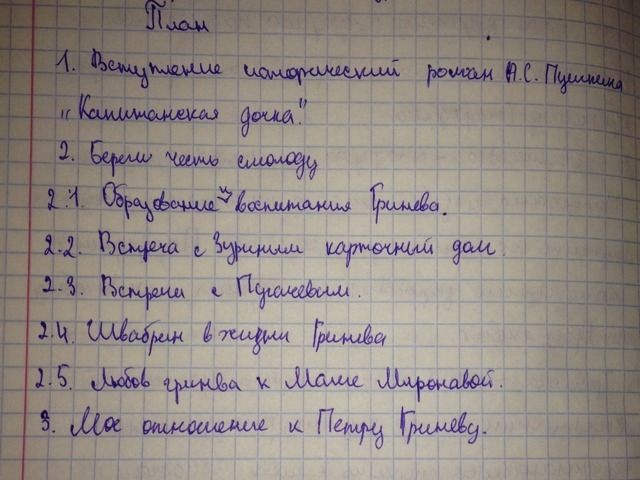 План
1. Вступление исторический роман А.С. Пушкина
„Капитанская дочка."
2. Береги честь смолоду
2.1. Образование и воспитания Гринева.
2.2. Встреча с Зуриным карточный долг.
2.3. Встречи с Пугачевым.
2.4. Швабрин в жизни Гринева
2.5. Любов гринва к Маше Мироновой.
3. Мое отношение к Петру Гриневу.